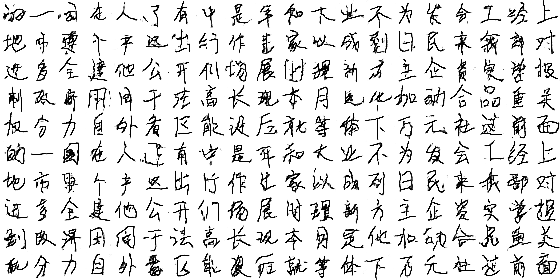 的一国在人了有中是年和大业不为发会工经上
地市要个产这出行作生家以成到日民来我部对
进多全建他公开们场展时理新方主企资实学报
制政用同于法高长现本月定化加动合品重关
机分力自外者区能设后就等体下万元社过前面
的一国在人了有中是年和大业不为发会工经上
地市要个产这出行作生家以成到日民来我部对
进多全建他公开们场展时理新方主企资实学报
制政济用同于法高长现本月定化加动合品重关
机分力自外者区能设后就等体下万元社过前面